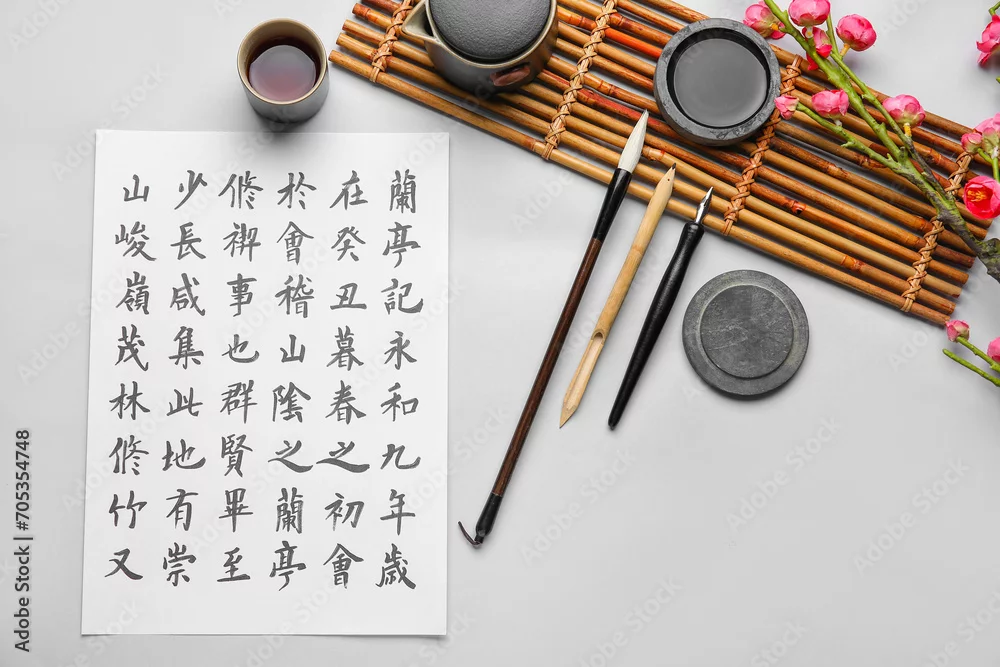 蘭亭記永和九年歲
在癸丑暮春之初會
於會稽山陰之蘭亭
修禊事也群賢畢至
少長咸集此地有崇
山峻嶺茂林修竹又
Adobe Stock | #705354748